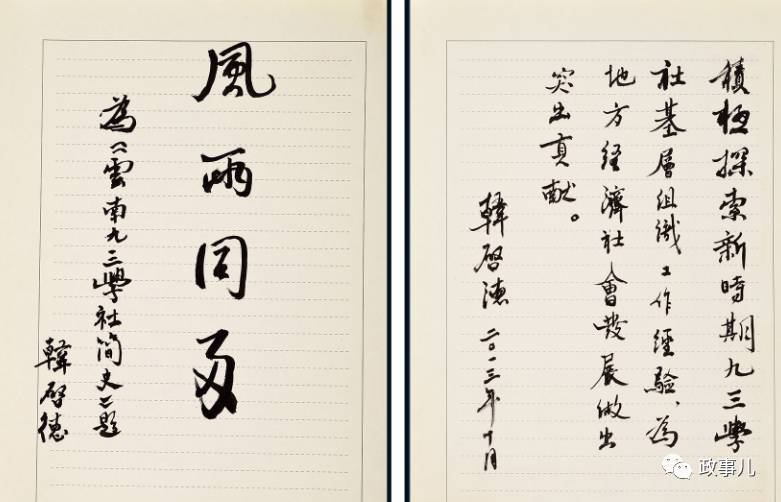 風雨同舟
為《雲南九三學社简史》題
韓啓德
積極探索新時期九三學
社基層組織工作經驗、為
地方经濟社會發展做出
突出貢献。
韓啓德 二〇一三年十月
政事儿